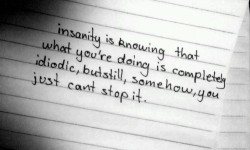 insanity is knowing that
what you're doing is completely
idiodic, but still, somehow, you
just cant stop it.